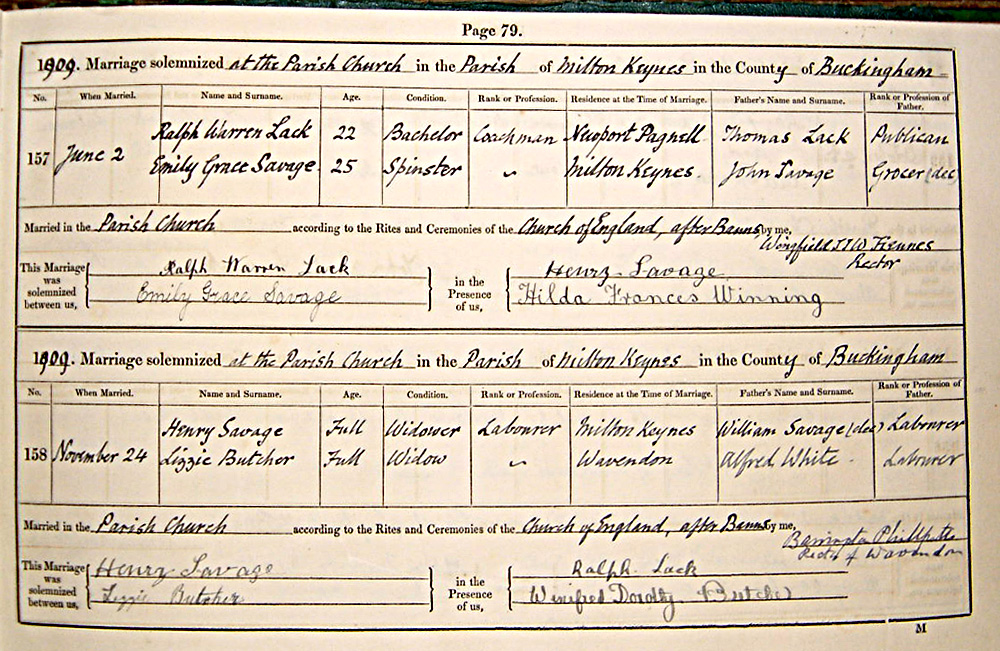 Page 79.
1909. Marriage solemnized at the Parish Church in the Parish of Milton Keynes in the County of Buckingham
No. When Married. Name and Surname. Age. Condition. Rank or Profession. Residence at the Time of Marriage. Father's Name and Surname. Rank or Profession of Father.
157 June 2 Ralph Warren Lack 22 Bachelor Coachman Newport Pagnell Thomas Lack Publican
Emily Grace Savage 25 Spinster Milton Keynes John Savage Grocer (dec)
Married in the Parish Church according to the Rites and Ceremonies of the Church of England, after Banns by me,
Wingfield Fiennes
Rector
This Marriage was solemnized between us, Ralph Warren Lack in the Presence of us, Henry Savage
Emily Grace Savage Hilda Frances Winning
1909. Marriage solemnized at the Parish Church in the Parish of Milton Keynes in the County of Buckingham
No. When Married. Name and Surname. Age. Condition. Rank or Profession. Residence at the Time of Marriage. Father's Name and Surname. Rank or Profession of Father.
158 November 24 Henry Savage Full Widower Labourer Milton Keynes William Savage (dec) Labourer
Lizzie Butcher Full Widow Wavendon Alfred White Labourer
Married in the Parish Church according to the Rites and Ceremonies of the Church of England, after Banns by me,
Rector of Wavendon
This Marriage was solemnized between us, Henry Savage in the Presence of us, Ralph Lack
Lizzie Butcher Winifred Dorothy Butcher
M